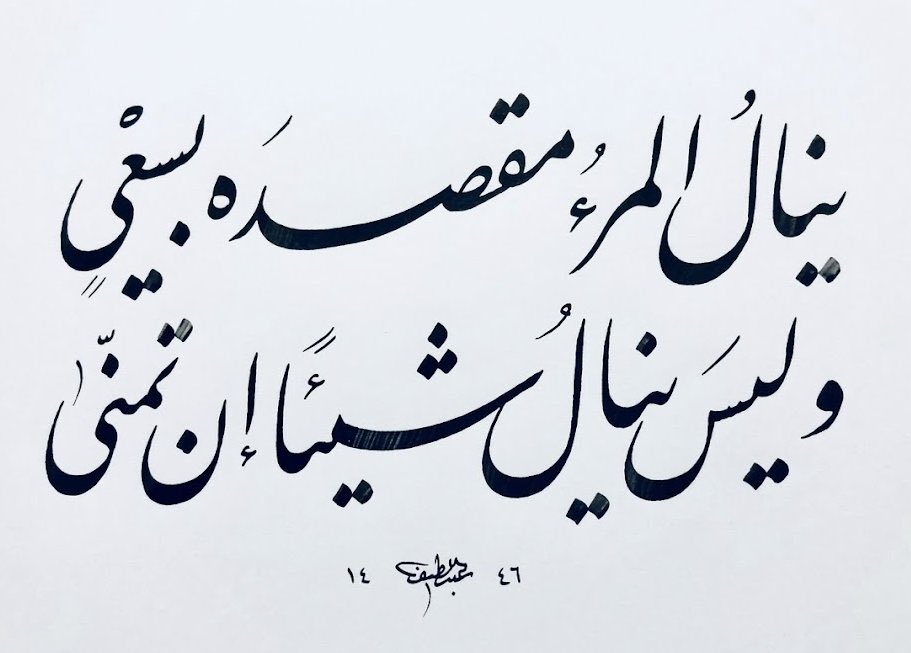 ينالُ المرءُ مقصدَه بسعْيٍ
وليسَ ينالُ شيئًا إن تمنّى
١٤ عبداللطيف ٤٦